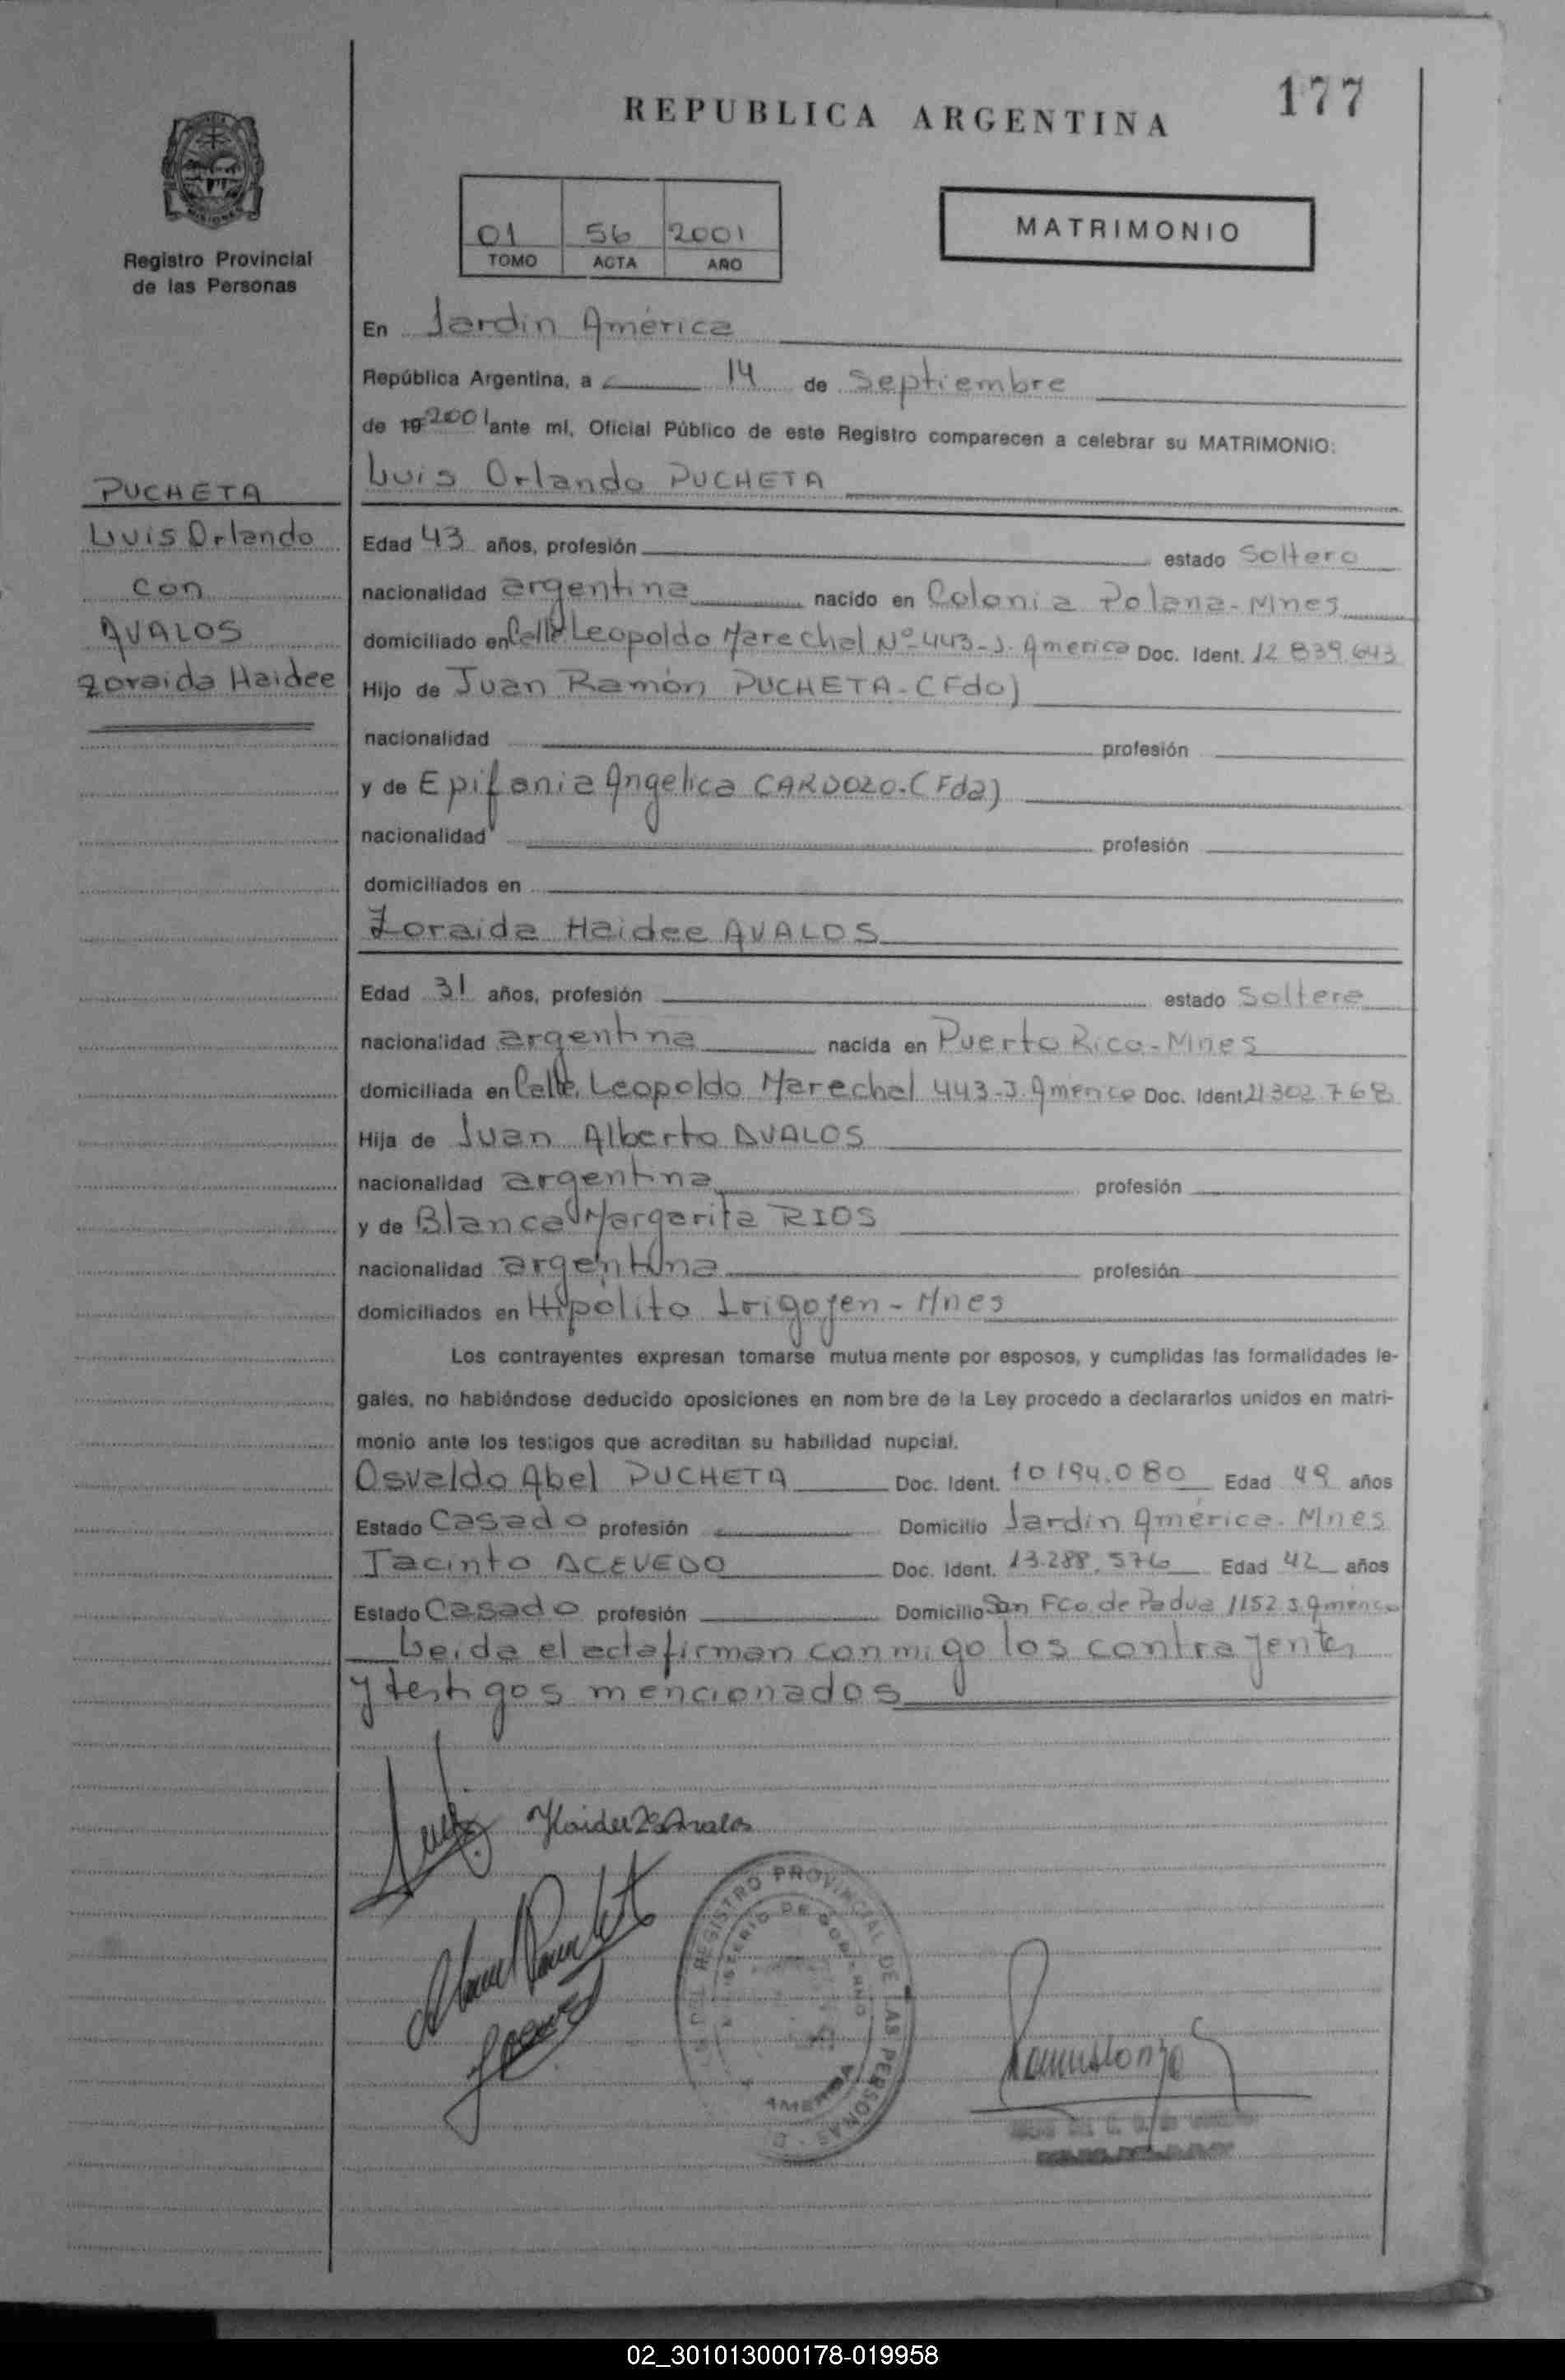 177
REPUBLICA ARGENTINA
MATRIMONIO
01 56 2001
TOMO ACTA AÑO
Registro Provincial
de las Personas
En Jardín América
República Argentina, a 14 de Septiembre
de 19 2001 ante mí, Oficial Público de este Registro comparecen a celebrar su MATRIMONIO:
Luis Orlando PUCHETA
PUCHETA
Luis Orlando
con
AVALOS
Zoraida Haidee
Edad 43 años, profesión estado Soltero
nacionalidad argentina nacido en Colonia Polana-Mnes
domiciliado en Calle Leopoldo Marechal Nº 443-J. America Doc. Ident. 12 839.643
Hijo de Juan Ramón PUCHETA-(Fdo)
nacionalidad profesión
y de Epifania Angelica CARDOZO-(Fda)
nacionalidad profesión
domiciliados en
Zoraida Haidee AVALOS
Edad 31 años, profesión estado Soltera
nacionalidad argentina nacida en Puerto Rico-Mnes
domiciliada en Calle. Leopoldo Marechal 443-J. America Doc. Ident. 21 302 768
Hija de Juan Alberto AVALOS
nacionalidad argentina profesión
y de Blanca Margarita RIOS
nacionalidad argentina profesión
domiciliados en Hipólito Irigoyen - Mnes
Los contrayentes expresan tomarse mutua mente por esposos, y cumplidas las formalidades le-
gales, no habiéndose deducido oposiciones en nom bre de la Ley procedo a declararlos unidos en matri-
monio ante los testigos que acreditan su habilidad nupcial.
Osvaldo Abel PUCHETA Doc. Ident. 10 194.080 Edad 49 años
Estado Casado profesión Domicilio Jardín América. Mnes
Jacinto ACEVEDO Doc. Ident. 13.288.576 Edad 42 años
Estado Casado profesión Domicilio San Fco de Padua 1152 J. America
Leida el acta firman conmigo los contrayentes
y testigos mencionados
Haidee Z Avalos
REGISTRO PROVINCIAL DE LAS PERSONAS
MINISTERIO DE GOBIERNO
AMERICA
02_301013000178-019958